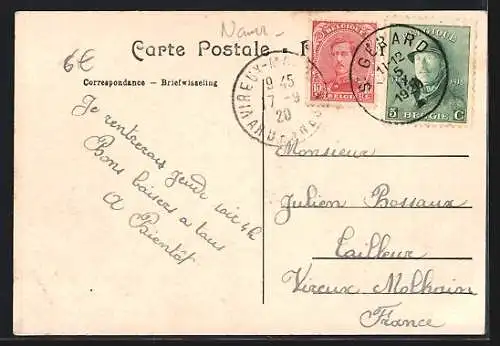 Namur
6€
Carte Postale
Correspondance — Briefwisseling
BELGIQUE
10
BELGIË
BELGIQUE
5 C
BELGIË
VIREUX-MO
19 45
7 - 9
20
ARDENNES
ST GERARD
11-12
5
1920
Je rentrerai jeudi soir 4h
Bons baisers a tous
A Bientôt
Monsieur
Julien Bossaux
Tailleur
Vireux Molhain
France